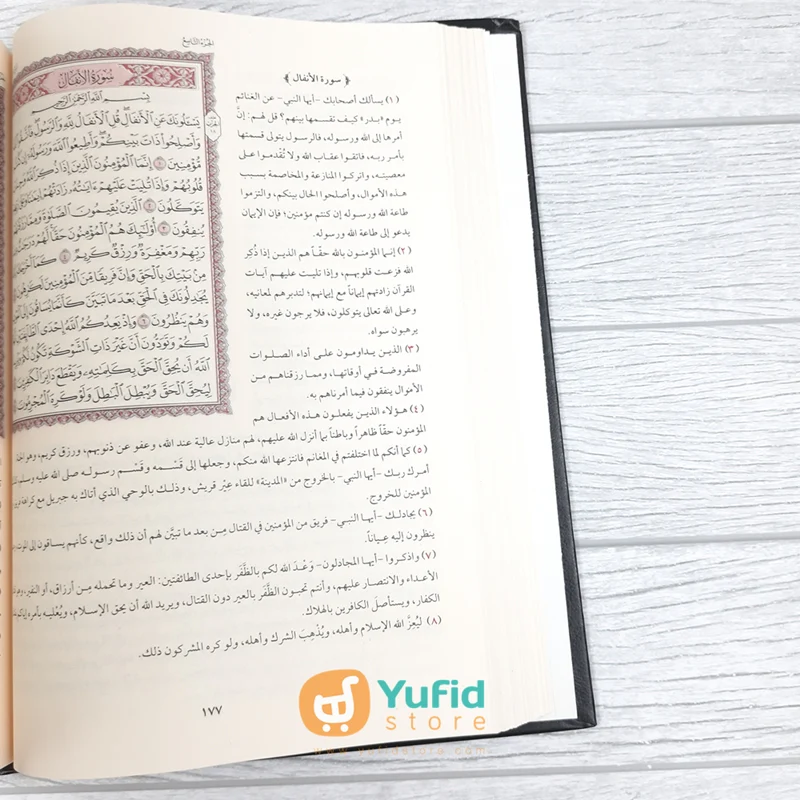 الجزء التاسع
سُورَةُ الأَنفَالِ
بِسْمِ اللَّهِ الرَّحْمَٰنِ الرَّحِيمِ
يَسْـَٔلُونَكَ عَنِ ٱلْأَنفَالِ ۖ قُلِ ٱلْأَنفَالُ لِلَّهِ وَٱلرَّسُولِ ۖ فَٱتَّقُوا۟
وَأَصْلِحُوا۟ ذَاتَ بَيْنِكُمْ ۖ وَأَطِيعُوا۟ ٱللَّهَ وَرَسُولَهُۥٓ إِن
مُّؤْمِنِينَ ۝١ إِنَّمَا ٱلْمُؤْمِنُونَ ٱلَّذِينَ إِذَا ذُكِرَ
قُلُوبُهُمْ وَإِذَا تُلِيَتْ عَلَيْهِمْ ءَايَٰتُهُۥ زَادَتْهُمْ إِيمَٰنًا
يَتَوَكَّلُونَ ۝٢ ٱلَّذِينَ يُقِيمُونَ ٱلصَّلَوٰةَ وَمِمَّا رَزَقْ
يُنفِقُونَ ۝٣ أُو۟لَٰٓئِكَ هُمُ ٱلْمُؤْمِنُونَ حَقًّا ۚ لَّهُمْ دَرَجَٰتٌ
رَبِّهِمْ وَمَغْفِرَةٌ وَرِزْقٌ كَرِيمٌ ۝٤ كَمَآ أَخْرَجَكَ
مِنۢ بَيْتِكَ بِٱلْحَقِّ وَإِنَّ فَرِيقًا مِّنَ ٱلْمُؤْمِنِينَ لَكَٰرِهُونَ
يُجَٰدِلُونَكَ فِى ٱلْحَقِّ بَعْدَ مَا تَبَيَّنَ كَأَنَّمَا يُسَاقُونَ إِلَى
وَهُمْ يَنظُرُونَ ۝٦ وَإِذْ يَعِدُكُمُ ٱللَّهُ إِحْدَى ٱلطَّآئِفَتَيْنِ
لَكُمْ وَتَوَدُّونَ أَنَّ غَيْرَ ذَاتِ ٱلشَّوْكَةِ تَكُونُ لَكُمْ
ٱللَّهُ أَن يُحِقَّ ٱلْحَقَّ بِكَلِمَٰتِهِۦ وَيَقْطَعَ دَابِرَ ٱلْكَٰفِرِينَ
لِيُحِقَّ ٱلْحَقَّ وَيُبْطِلَ ٱلْبَٰطِلَ وَلَوْ كَرِهَ ٱلْمُجْرِمُونَ
﴿ سورة الأنفال ﴾
(١) يسألك أصحابك -أيها النبي- عن الغنائم
يوم «بدر» كيف تقسمها بينهم؟ قل لهم: إنَّ
أمرها إلى الله ورسوله، فالرسول يتولى قسمتها
بأمر ربه، فاتقوا عقاب الله ولا تُقدموا على
معصيته، واتركوا المنازعة والمخاصمة بسبب
هذه الأموال، وأصلحوا الحال بينكم، والتزموا
طاعة الله ورسوله إن كنتم مؤمنين؛ فإن الإيمان
يدعو إلى طاعة الله ورسوله.
(٢) إنما المؤمنون بالله حقّاً هم الذين إذا ذُكِر
الله فزعت قلوبهم، وإذا تليت عليهم آيات
القرآن زادتهم إيماناً مع إيمانهم؛ لتدبرهم لمعانيه،
وعلى الله تعالى يتوكلون، فلا يرجون غيره، ولا
يرهبون سواه.
(٣) الذين يداومون على أداء الصلوات
المفروضة في أوقاتها، ومما رزقناهم من
الأموال ينفقون فيما أمرناهم به.
(٤) هؤلاء الذين يفعلون هذه الأفعال هم
المؤمنون حقّاً ظاهراً وباطناً بما أنزل الله عليهم، لهم منازل عالية عند الله، وعفو عن ذنوبهم، ورزق كريم، وهو
(٥) كما أنكم لما اختلفتم في المغانم فانتزعها الله منكم، وجعلها إلى قَسْمه وقَسْم رسوله صلى الله عليه وسلم
أمرك ربك -أيها النبي- بالخروج من «المدينة» للقاء عِيْر قريش، وذلك بالوحي الذي أتاك به جبريل مع كراهة
المؤمنين للخروج.
(٦) يجادلك -أيها النبي- فريق من المؤمنين في القتال مِن بعد ما تبيَّن لهم أن ذلك واقع، كأنهم يساقون إلى الموت
ينظرون إليه عِياناً.
(٧) واذكروا -أيها المجادلون- وَعْدَ الله لكم بالظَّفَر بإحدى الطائفتين: العير وما تحمله مِن أرزاق، أو النفير، وهو
الأعداء والانتصار عليهم، وأنتم تحبون الظَّفَر بالعير دون القتال، ويريد الله أن يحق الإسلام، ويُعْليه بأمره إياكم
الكفار، ويستأصل الكافرين بالهلاك.
(٨) ليُعِزَّ الله الإسلام وأهله، ويُذْهِبَ الشرك وأهله، ولو كره المشركون ذلك.
١٧٧
Yufid
store